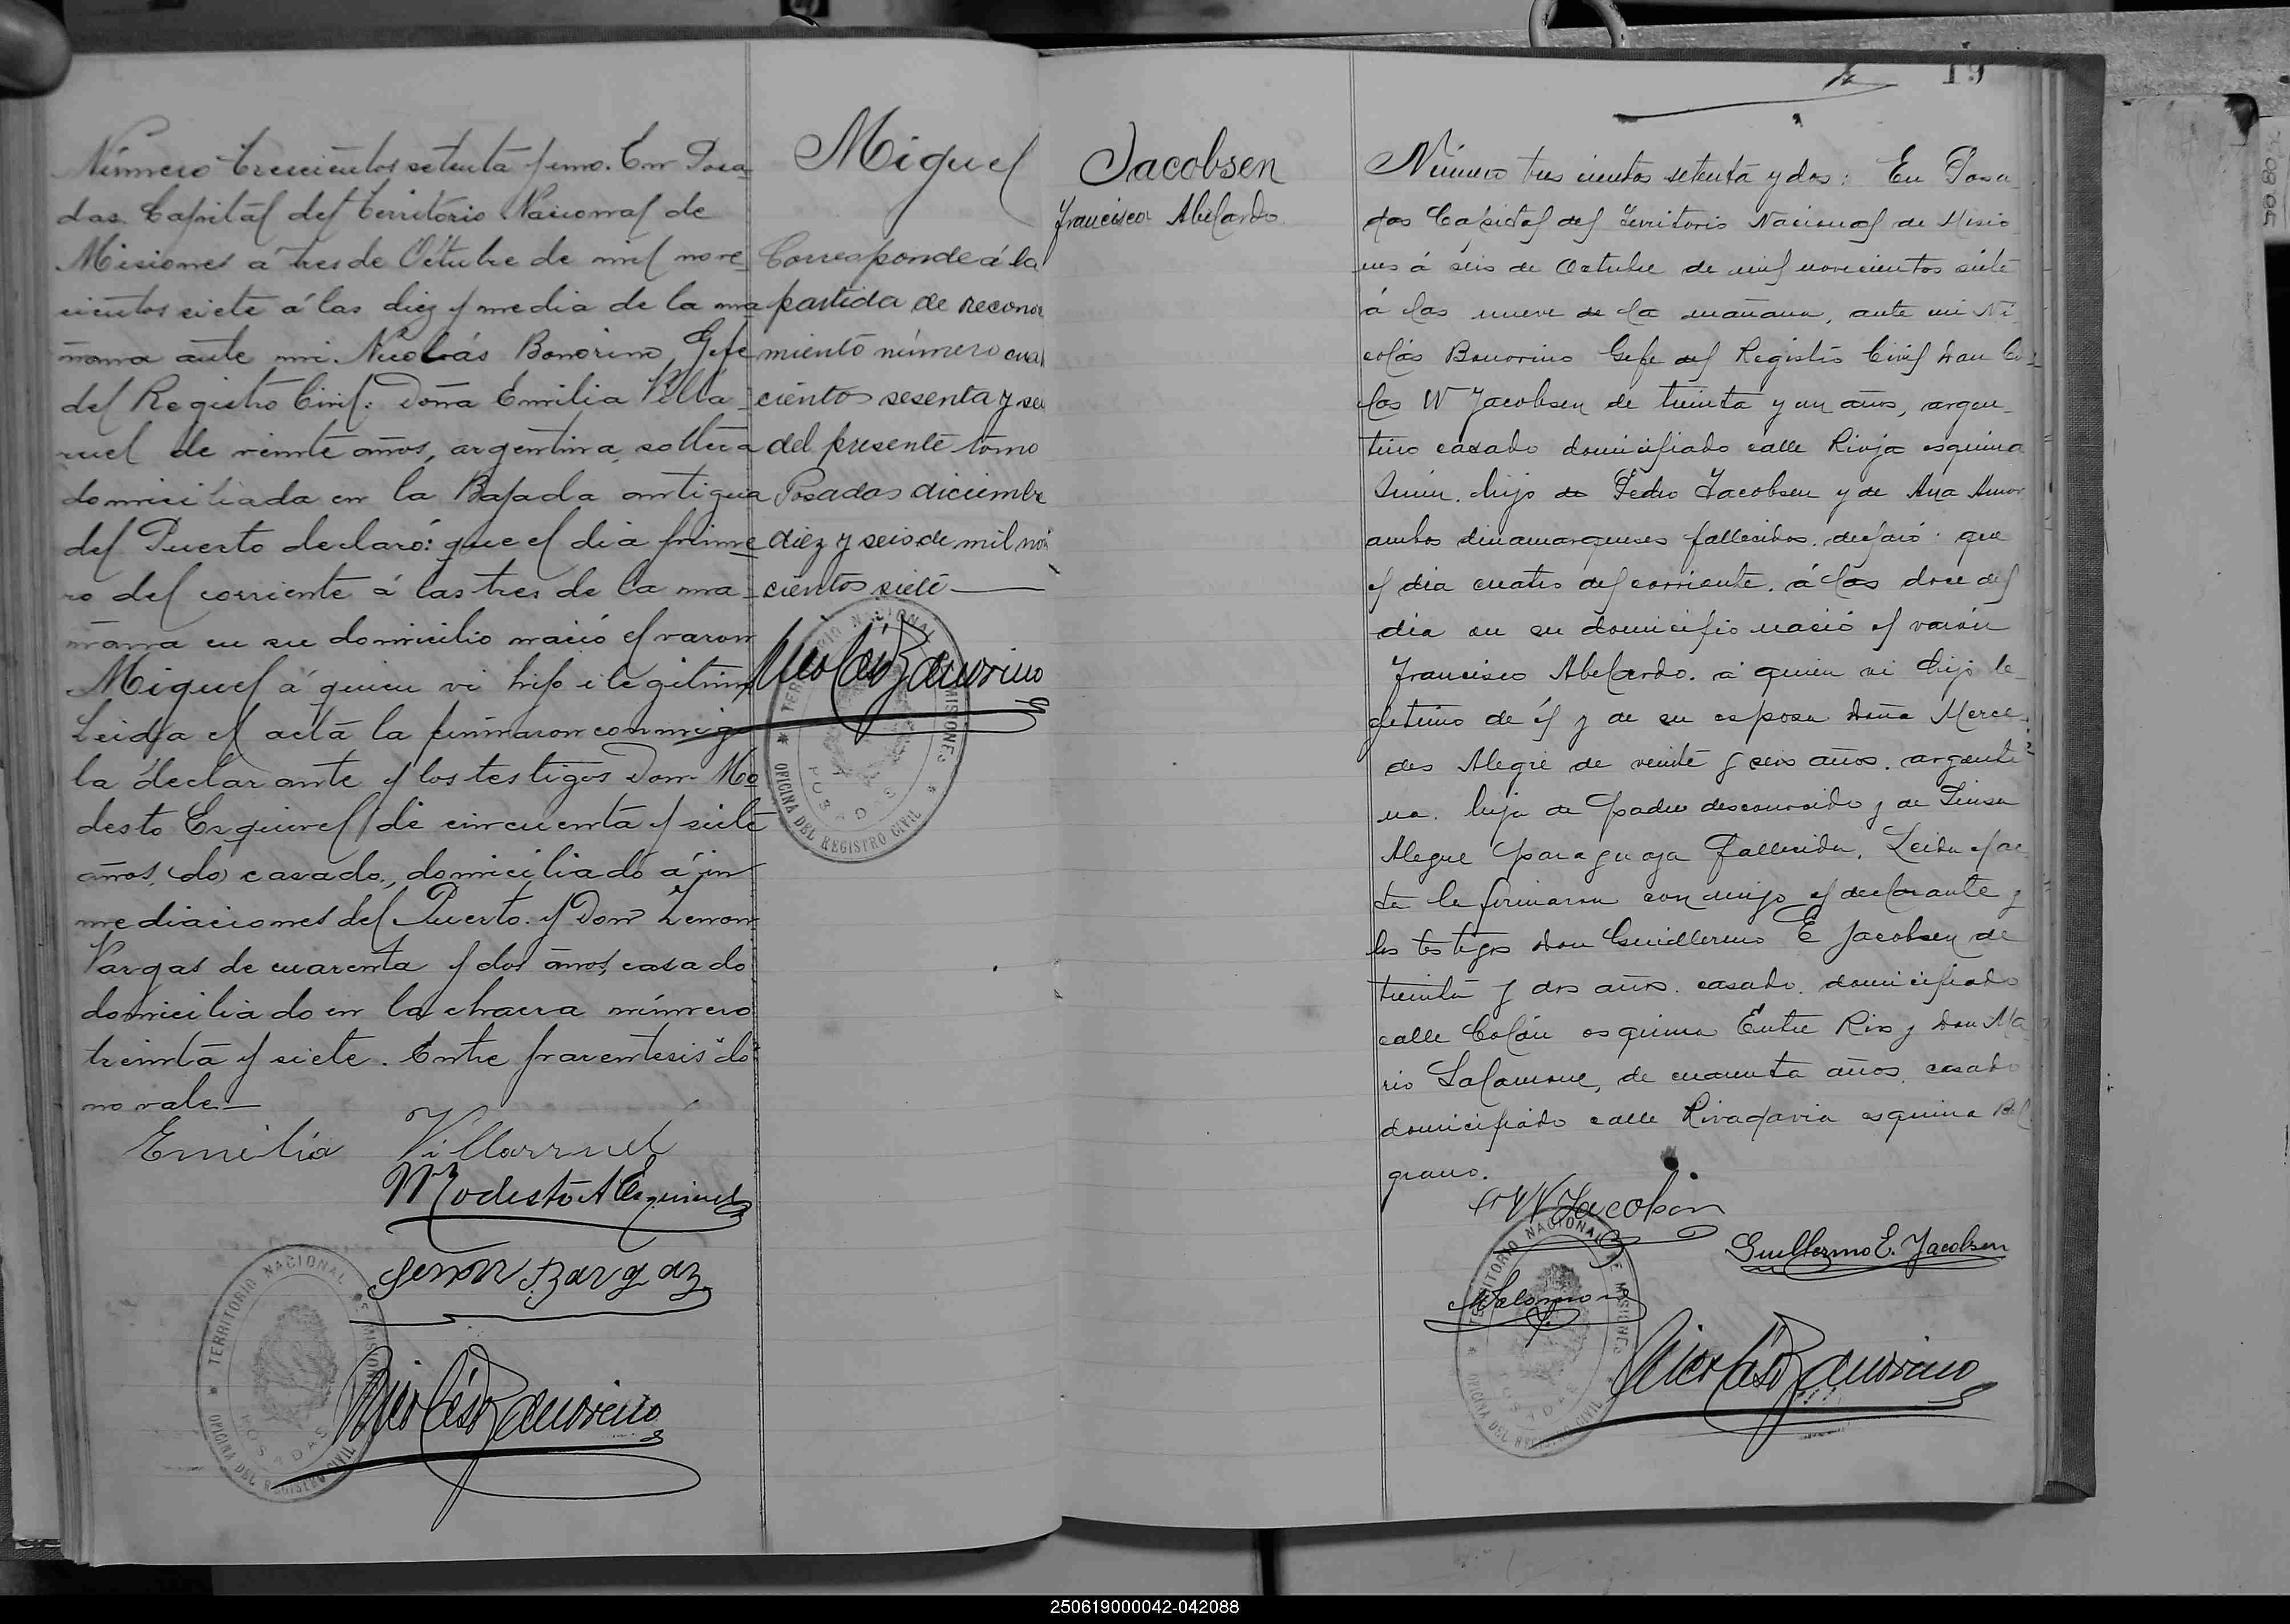 Número trescientos setenta y uno. En Posa
das Capital del Territorio Nacional de
Misiones á tres de Octubre de mil nove
cientos siete á las diez y media de la ma
ñana ante mi Nicolás Bonorino, Gefe
del Registro Civil: Doña Emilia Villa
rruel de veinte años, argentina, soltera
domiciliada en la Bajada antigua
del Puerto declaró: que el dia prime
ro del corriente á las tres de la ma
ñana en su domicilio nació el varon
Miguel á quien vi hijo ilegitimo
Leida el acta la firmaron conmigo
la declarante y los testigos Don Mo
desto Esquivel de cincuenta y siete
años, (do) casado, domiciliado á in
mediaciones del Puerto y Don Zenon
Vargas de cuarenta y dos años, casado
domiciliado en la chacra número
treinta y siete. Entre parentesis "do
no vale—
Emilia Villarruel
Modesto A Esquivel
Senon Bargaz
Nicolás Bonorino
TERRITORIO NACIONAL DE MISIONES
POSADAS
OFICINA DEL REGISTRO CIVIL
Miguel
Corresponde á la
partida de reconoci
miento número cua
ciento sesenta y sei
del presente tomo
Posadas diciembre
diez y seis de mil no
cientos siete—
Nicolás Bonorino
TERRITORIO NACIONAL DE MISIONES
POSADAS
OFICINA DEL REGISTRO CIVIL
19
Jacobsen
Francisco Abelardo
Número tres cientos setenta y dos: En Posa
das Capital del Territorio Nacional de Misio
nes á seis de Octubre de mil novecientos siete
á las nueve de la mañana, ante mi Ni
colás Bonorino Gefe del Registro Civil Don Co
las W Jacobsen de treinta y un años, argen
tino casado domiciliado calle Rioja esquina
Junin. hijo de Pedro Jacobsen y de Ana Amor
ambos dinamarqueses fallecidos. declaró: que
el dia cuatro del corriente. á las doce del
dia en su domicilio nació el varón
Francisco Abelardo. á quien vi hijo le
gitimo de él y de su esposa Doña Merce
des Alegre de veinte y seis años. argenti
na. hija de padre desconocido y de
Alegre paraguaya fallecida. Leida el ac
ta la firmaron conmigo el declarante y
los testigos Don Guillermo E Jacobsen de
treinta y dos años. casado. domiciliado
calle Colón esquina Entre Rios y Don Ma
rio Salamone, de cuarenta años. casado
domiciliado calle Rivadavia esquina Bel
grano.
W Jacobsen
Guillermo E. Jacobsen
MSalamone
Nicolás Bonorino
TERRITORIO NACIONAL DE MISIONES
POSADAS
OFICINA DEL REGISTRO CIVIL
250619000042-042088